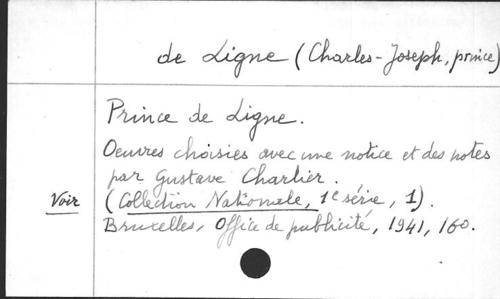 de Ligne (Charles-Joseph, prince)
Prince de Ligne.
Oeuvres choisies avec une notice et des notes
par Gustave Charlier.
Voir
(Collection Nationale, 1e série, 1).
Bruxelles, Office de publicité, 1941, 160.